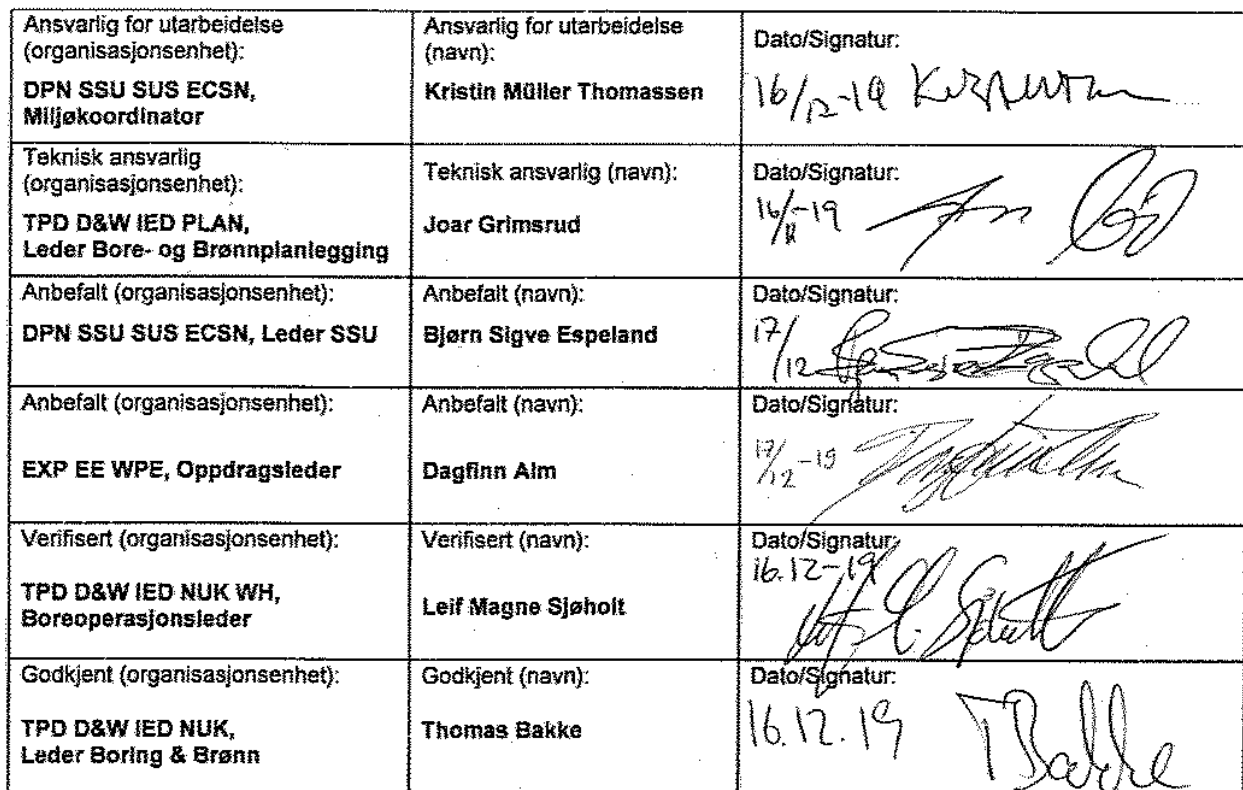 Ansvarlig for utarbeidelse
(organisasjonsenhet):
DPN SSU SUS ECSN,
Miljøkoordinator
Ansvarlig for utarbeidelse
(navn):
Kristin Müller Thomassen
Dato/Signatur:
16/12-19
Teknisk ansvarlig
(organisasjonsenhet):
TPD D&W IED PLAN,
Leder Bore- og Brønnplanlegging
Teknisk ansvarlig (navn):
Joar Grimsrud
Dato/Signatur:
Anbefalt (organisasjonsenhet):
DPN SSU SUS ECSN, Leder SSU
Anbefalt (navn):
Bjørn Sigve Espeland
Dato/Signatur:
17/12
Anbefalt (organisasjonsenhet):
EXP EE WPE, Oppdragsleder
Anbefalt (navn):
Dagfinn Alm
Dato/Signatur:
17/12-19
Verifisert (organisasjonsenhet):
TPD D&W IED NUK WH,
Boreoperasjonsleder
Verifisert (navn):
Leif Magne Sjøholt
Dato/Signatur:
16.12-19
Godkjent (organisasjonsenhet):
TPD D&W IED NUK,
Leder Boring & Brønn
Godkjent (navn):
Thomas Bakke
Dato/Signatur:
16.12.19
TBakke